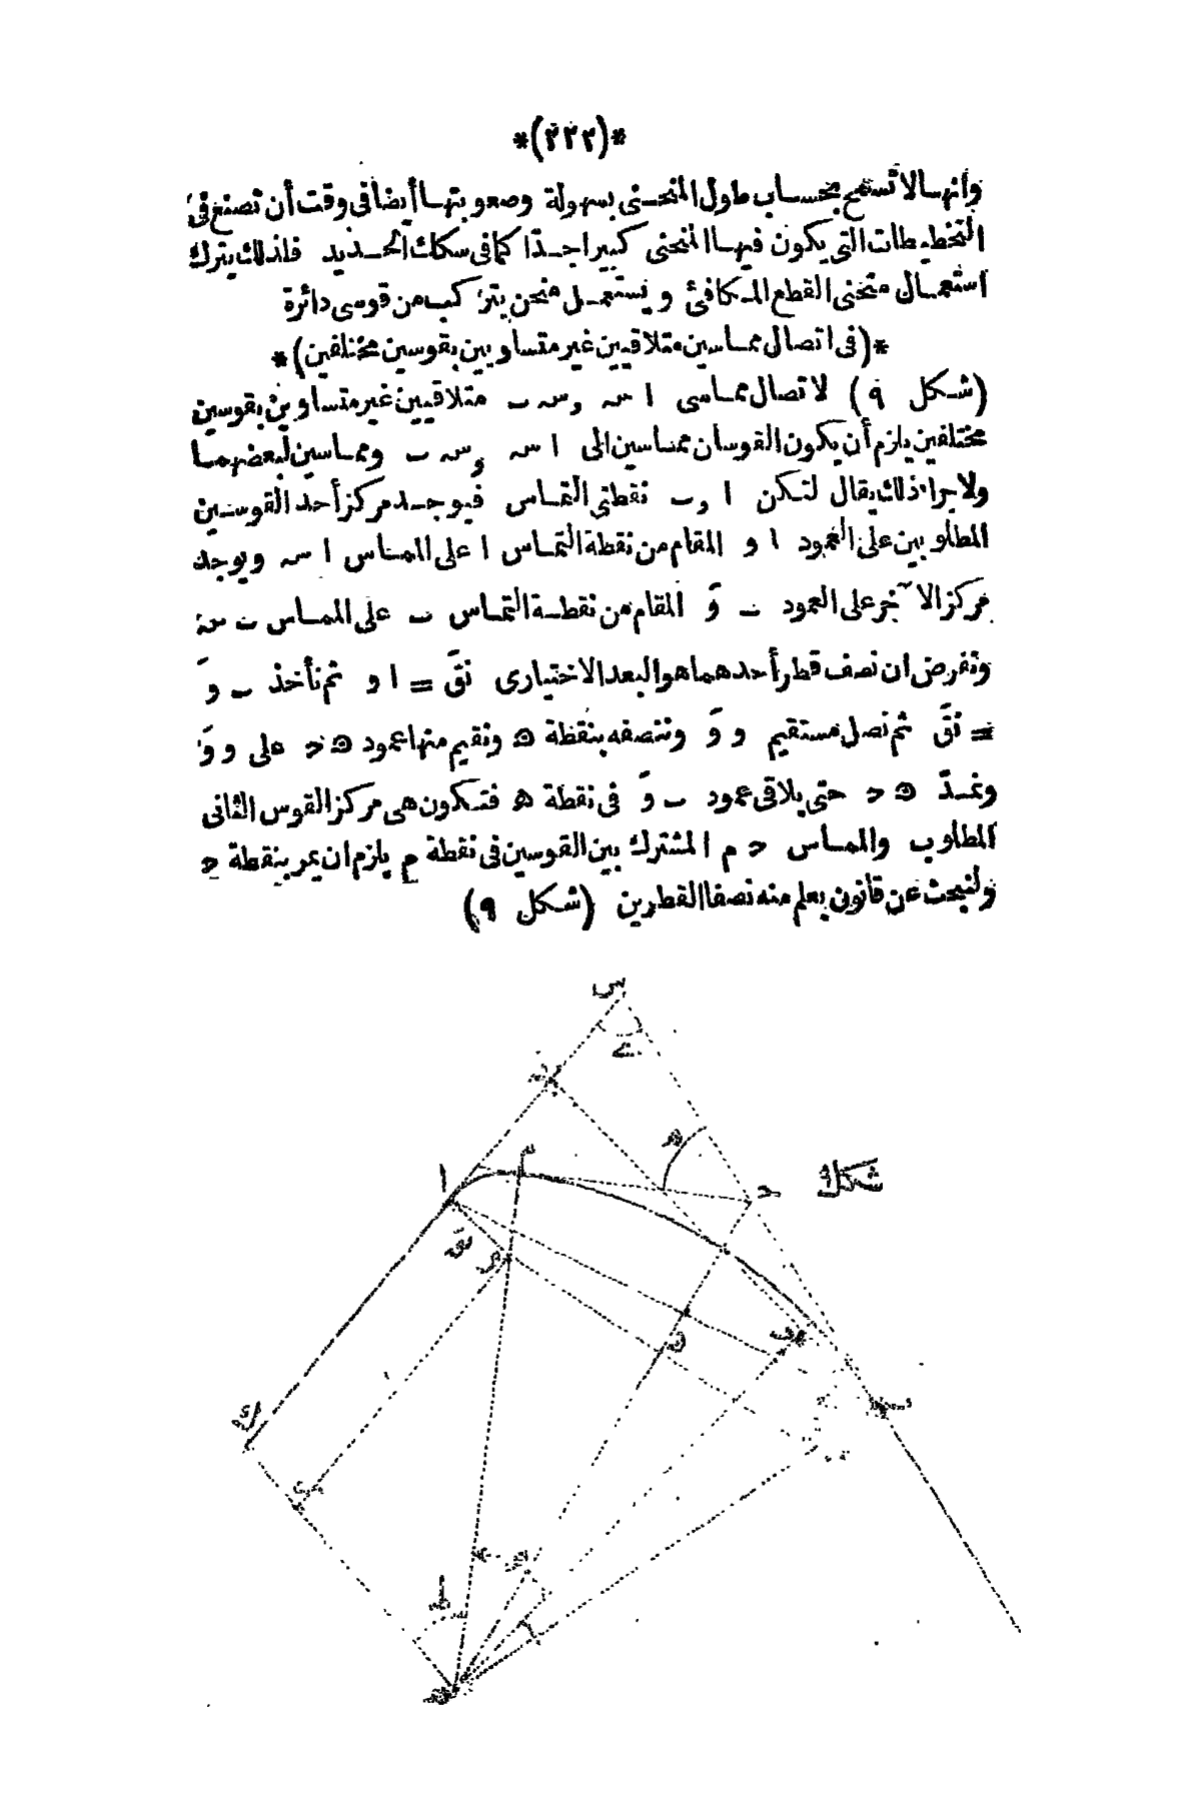 *(٢٢٢)*
وانها لا تسمح بحساب طول المنحنى بسهولة وصعوبتها أيضا فى وقت أن تصنع فى
التخطيطات التى يكون فيها المنحنى كبيرا جدّا كما فى سكك الحديد فلذلك يترك
استعمال منحنى القطع المكافئ ويستعمل منحن يتركب من قوسى دائرة
*(فى اتصال مماسين متلاقيين غير متساويين بقوسين مختلفين)*
(شكل ٩) لاتصال مماسى ا س وس ب متلاقيين غير متساويين بقوسين
مختلفين يلزم أن يكون القوسان مماسين الى ا س وس ب ومماسين لبعضهما
ولاجراء ذلك يقال لتكن ا وب نقطتى التماس فيوجد مركز أحد القوسين
المطلوبين على العمود ا و المقام من نقطة التماس ا على المماس ا س ويوجد
مركز الآخر على العمود ب وَ المقام من نقطة التماس ب على المماس ب س
ونفرض ان نصف قطر أحدهما هو البعد الاختيارى نقَ = ا و ثم نأخذ ب وَ
= نقَ ثم نصل مستقيم و وَ وننصفه بنقطة ه ونقيم منها عمود ه د على و وَ
ونمدّ ه د حتى يلاقى عمود ب وَ فى نقطة ه فتكون هى مركز القوس الثانى
المطلوب والمماس د م المشترك بين القوسين فى نقطة م يلزم ان يمر بنقطة د
ولنبحث عن قانون يعلم منه نصفا القطرين (شكل ٩)
س
ا
م
شكل ٩